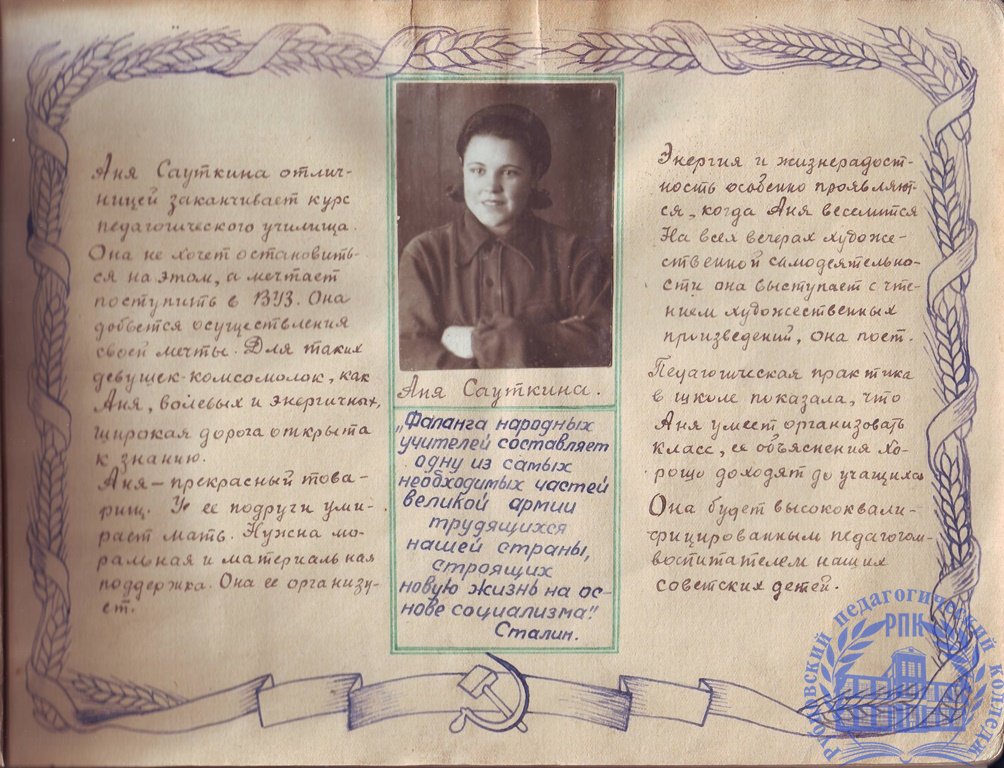 Аня Сауткина отлич-
ницей заканчивает курс
педагогического училища.
Она не хочет остановить-
ся на этом, а мечтает
поступить в ВУЗ. Она
добьется осуществления
своей мечты. Для таких
девушек-комсомолок, как
Аня, волевых и энергичных,
широкая дорога открыта
к знанию.
Аня – прекрасный това-
рищ. У ее подруги уми-
рает мать. Нужна мо-
ральная и материальная
поддержка. Она ее организу-
ет.
Аня Сауткина.
„Фаланга народных
учителей составляет
одну из самых
необходимых частей
великой армии
трудящихся
нашей страны,
строящих
новую жизнь на ос-
нове социализма".
Сталин.
Энергия и жизнерадост-
ность особенно проявляют-
ся, когда Аня веселится
На всех вечерах художе-
ственной самодеятельно-
сти она выступает с чте-
нием художественных
произведений, она поет.
Педагогическая практика
в школе показала, что
Аня умеет организовать
класс, ее объяснения хо-
рошо доходят до учащихся
Она будет высококвали-
фицированным педагогом-
воспитателем наших
советских детей.
Рузовский педагогический колледж
РПК